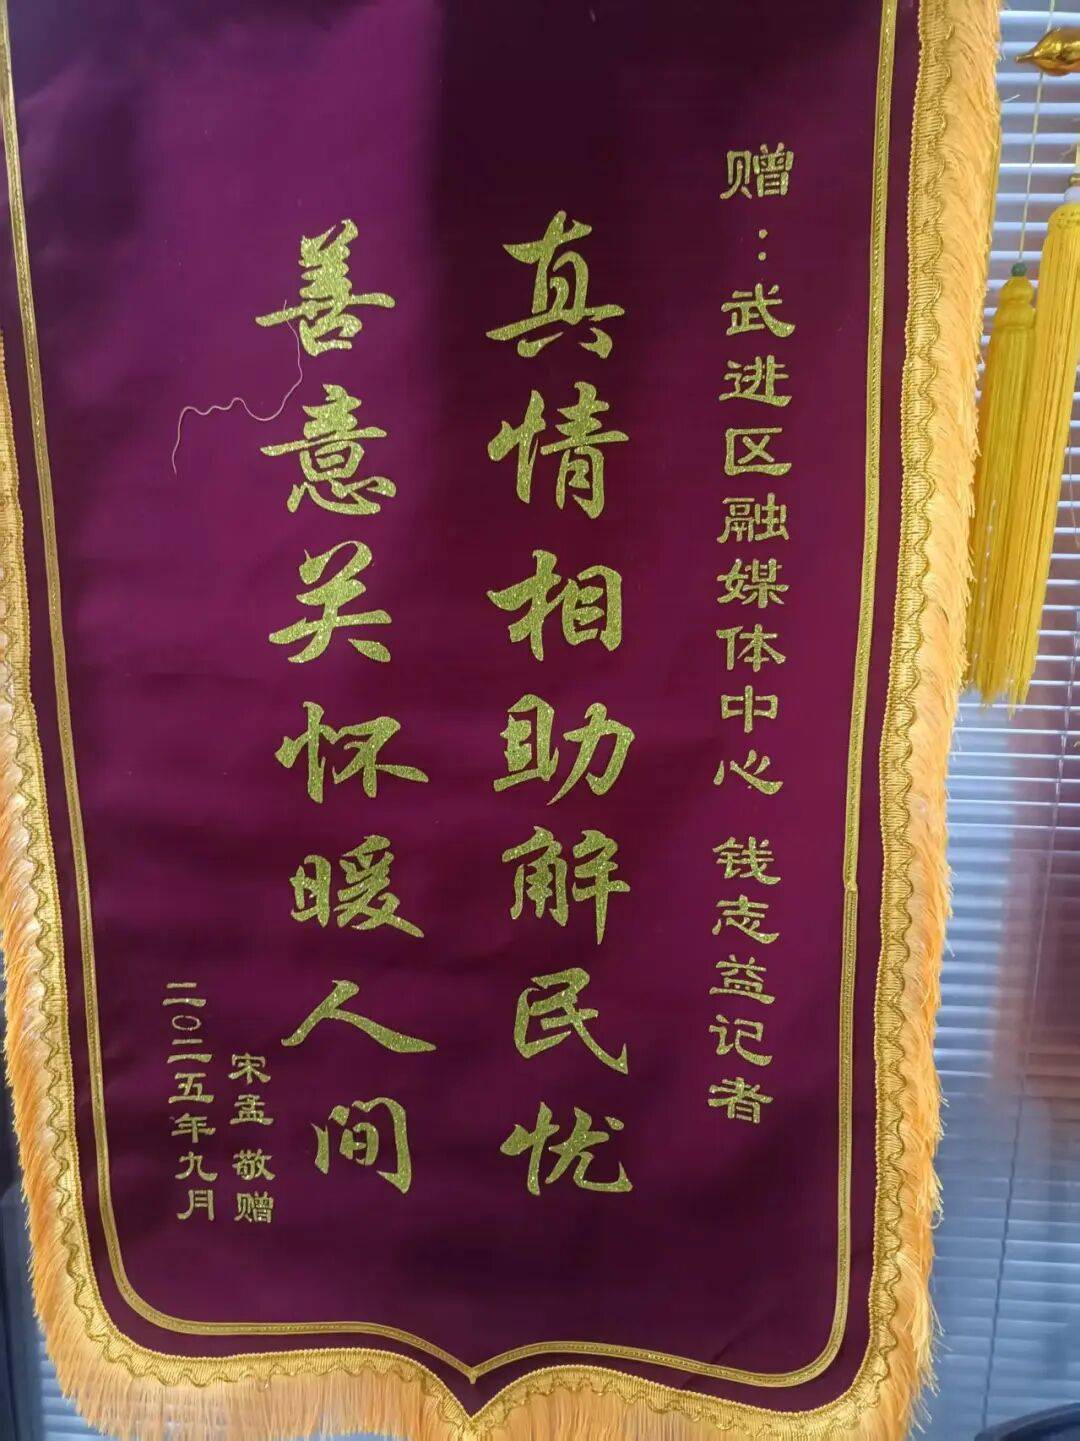 赠：武进区融媒体中心 钱志益记者
真情相助解民忧
善意关怀暖人间
宋孟 敬赠
二〇二五年九月